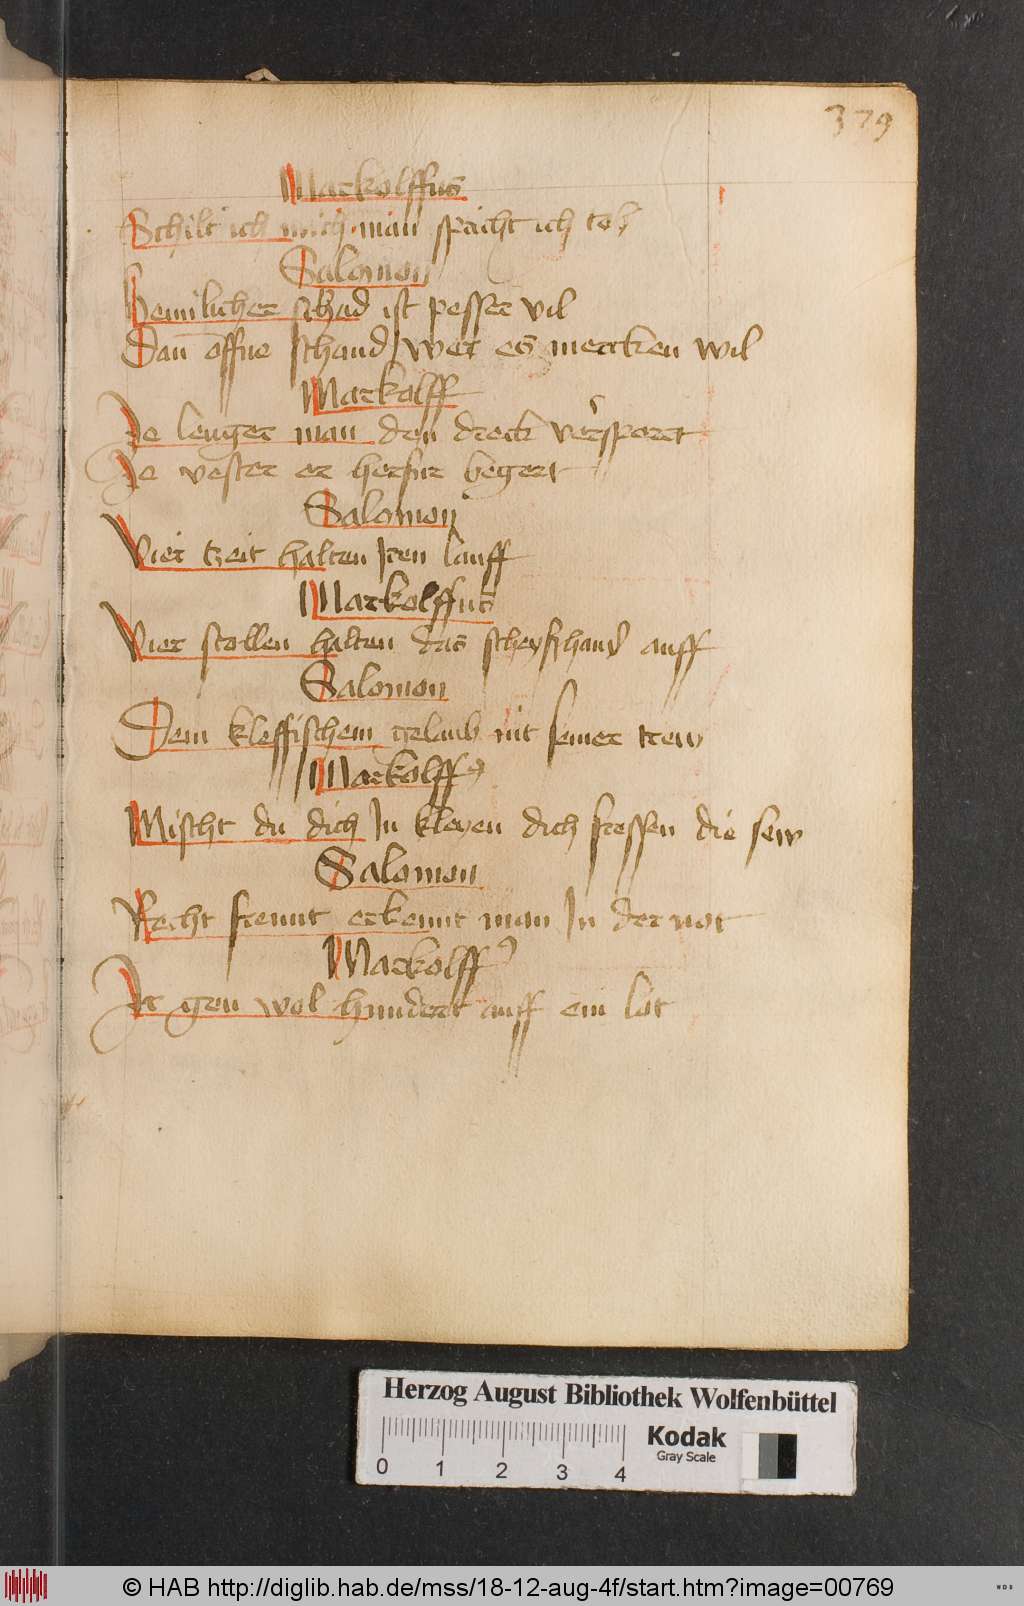 379
Markolffus
Schilt ich mich man spricht ich tob
Salomon
Hemlicher schad ist pesser vil
Dan offne schand wer es mercken wil
Markolff
Je lenger man den dreck versperrt
Je vester er herfur begert
Salomon
Vier tzeit halten Iren lauff
Markolffus
Vier stollen halten das scheyszhaus auff
Salomon
Dem kleffischem gelaub nit seiner trew
Markolff9
Mischt du dich In kleyen dich fressen die sew
Salomon
Recht freunt erkennt man In der not
Markolff9
Ir gen wol hundert auff ein lot
Herzog August Bibliothek Wolfenbüttel
0 1 2 3 4
Kodak
Gray Scale
© HAB http://diglib.hab.de/mss/18-12-aug-4f/start.htm?image=00769
WDB